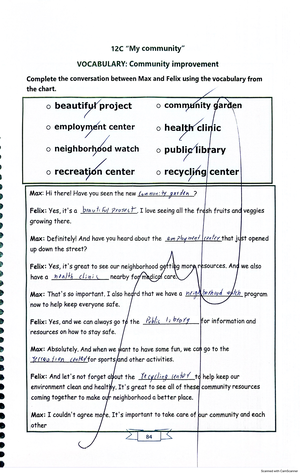 12C "My community"
VOCABULARY: Community improvement
Complete the conversation between Max and Felix using the vocabulary from
the chart.
o beautiful project o community garden
o employment center o health clinic
o neighborhood watch o public library
o recreation center o recycling center
Max: Hi there! Have you seen the new community garden ?
Felix: Yes, it's a beautiful project. I love seeing all the fresh fruits and veggies
growing there.
Max: Definitely! And have you heard about the employment center that just opened
up down the street?
Felix: Yes, it's great to see our neighborhood getting more resources. And we also
have a health clinic nearby for medical care.
Max: That's so important. I also heard that we have a neighborhood watch program
now to help keep everyone safe.
Felix: Yes, and we can always go to the Public library for information and
resources on how to stay safe.
Max: Absolutely. And when we want to have some fun, we can go to the
recreation center for sports and other activities.
Felix: And let's not forget about the recycling center to help keep our
environment clean and healthy. It's great to see all of these community resources
coming together to make our neighborhood a better place.
Max: I couldn't agree more. It's important to take care of our community and each
other
84
Scanned with CamScanner